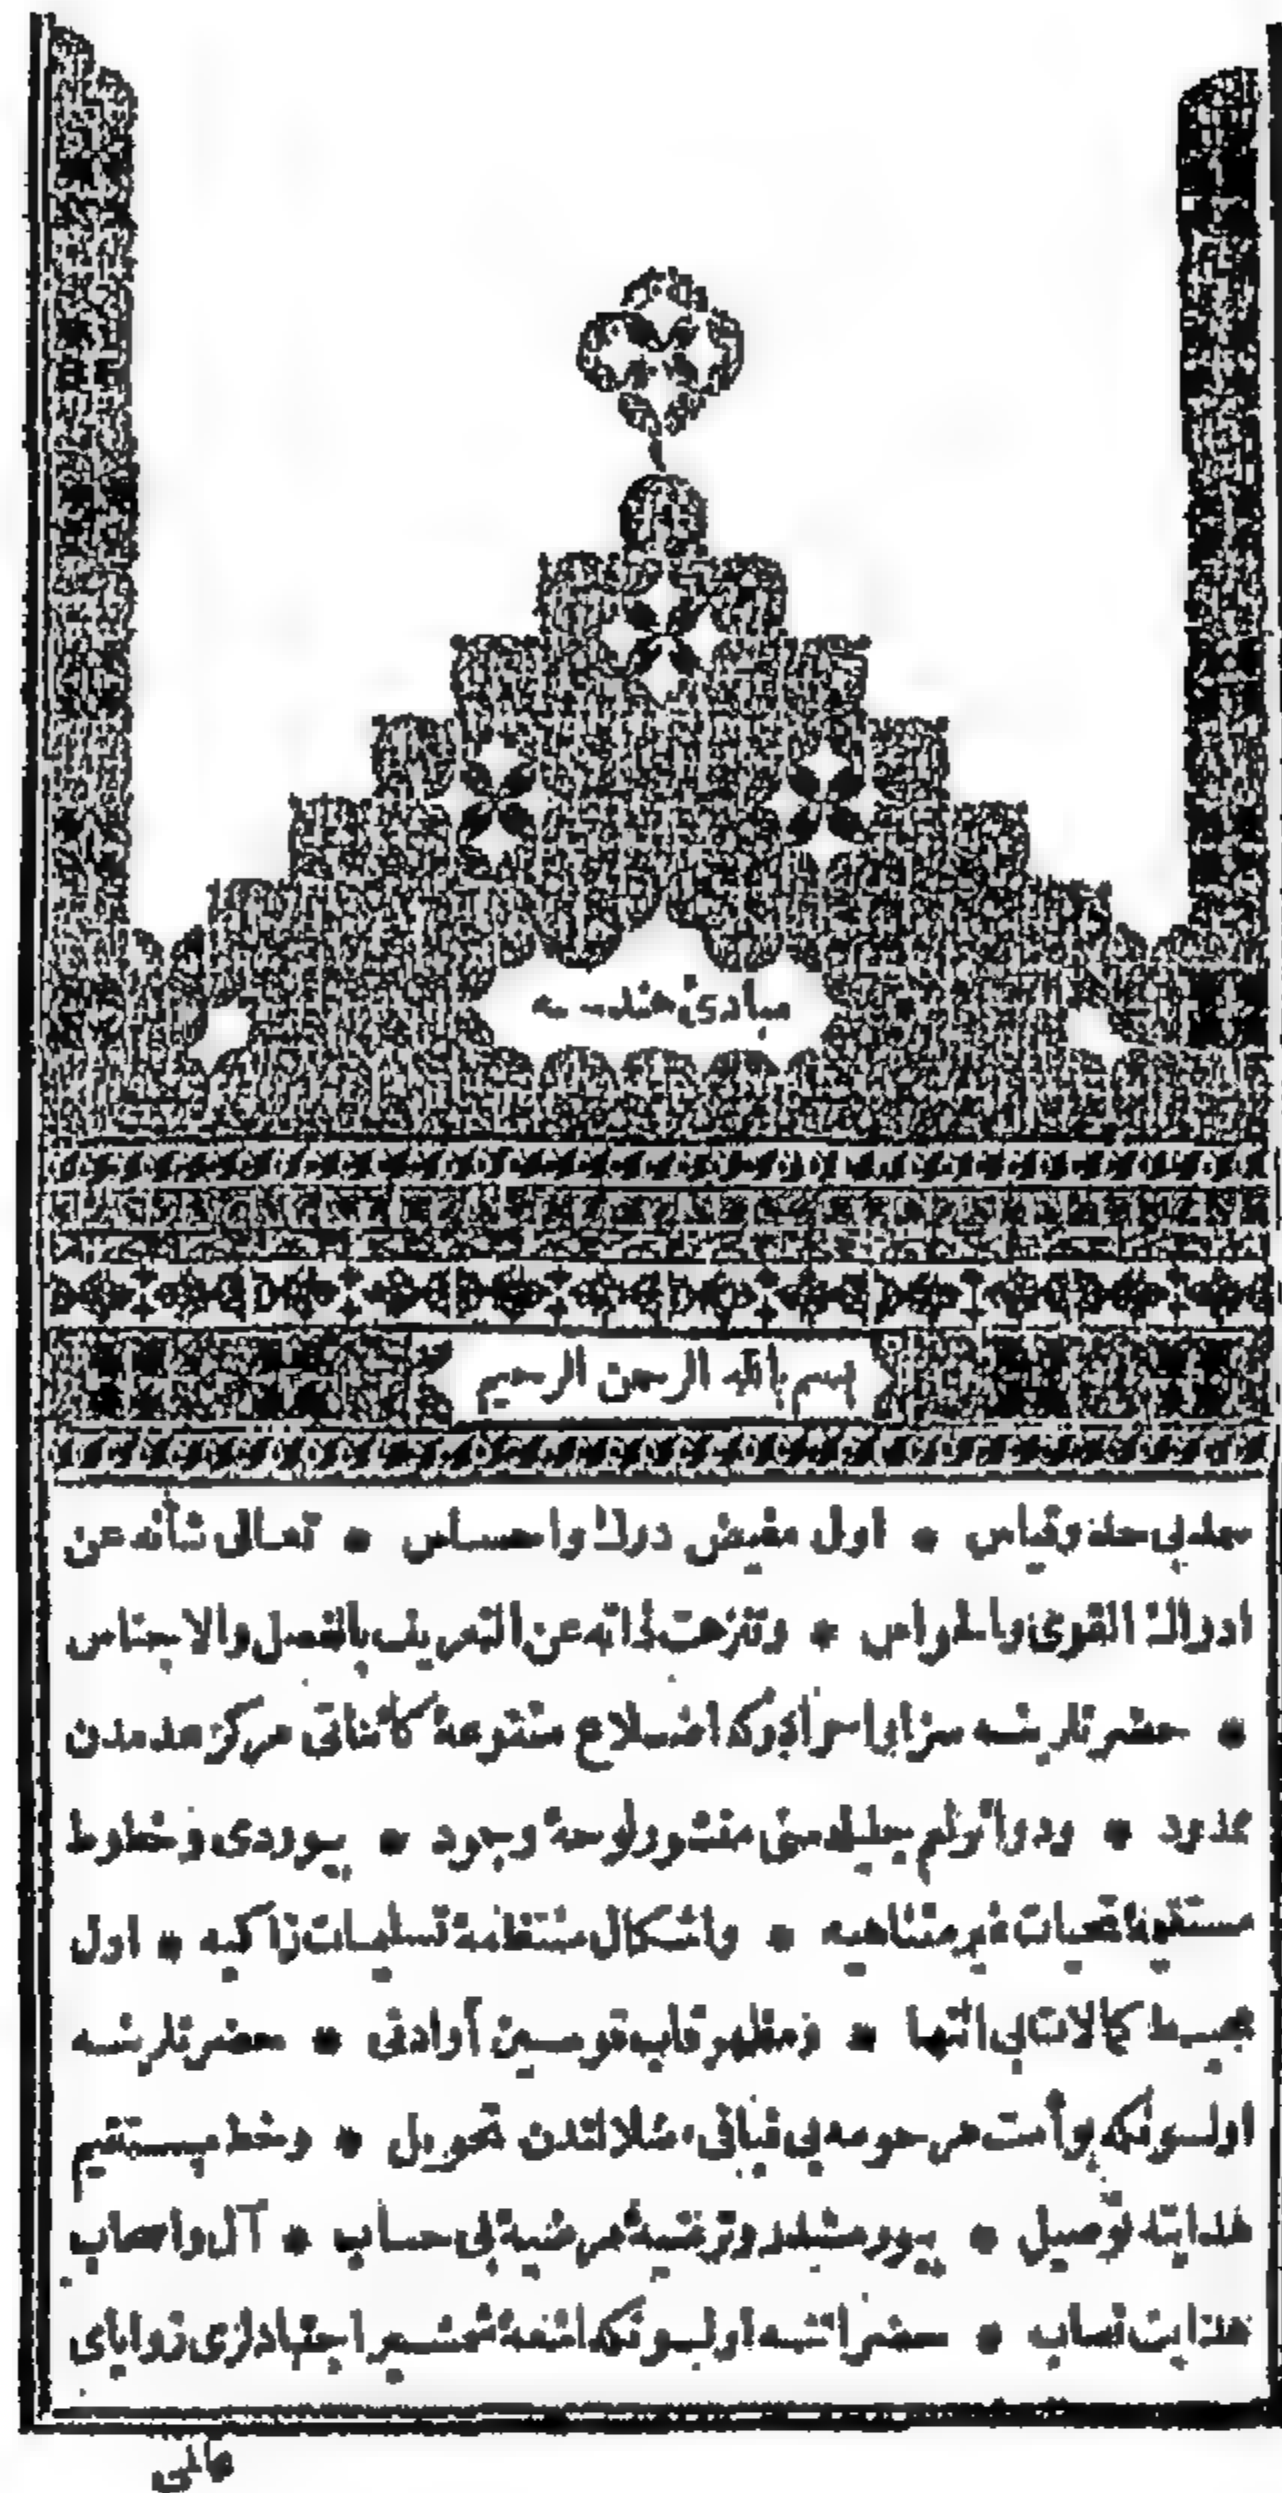 مبادئ هندسه
بسم الله الرحمن الرحيم
حمد بى حد وقياس * اول مفيض درك واحساس * تعالى شأنه عن
ادراك القوى والحواس * وتنزهت ذاته عن التعريف بالفصل والاجناس
* حضرتلرينه سزاوار اوله كه اضلاع متنوعۀ كائناتى مركز عدمدن
محدود * ودوائر جليله سنى منشور لوحۀ وجود * بيوردى وخطوط
مستقيمۀ تحيات غير متناهيه * واشكال منتظمۀ تسليمات زاكيه * اول
محيط كمالات بى انتها * ومظهر قاب قوسين أوادنى * حضرتلرينه
اولسونكه بو أمت مرحومه بى فيافئ ضلالتدن تحويل * وخط مستقيم
هدايته توصيل * بيورمشلدر وترضيۀ مرضيۀ بى حساب * آل واصحاب
هدايت نصاب * حضراتنه اولسونكه اشعۀ شمشير اجتهادلرى زواياى